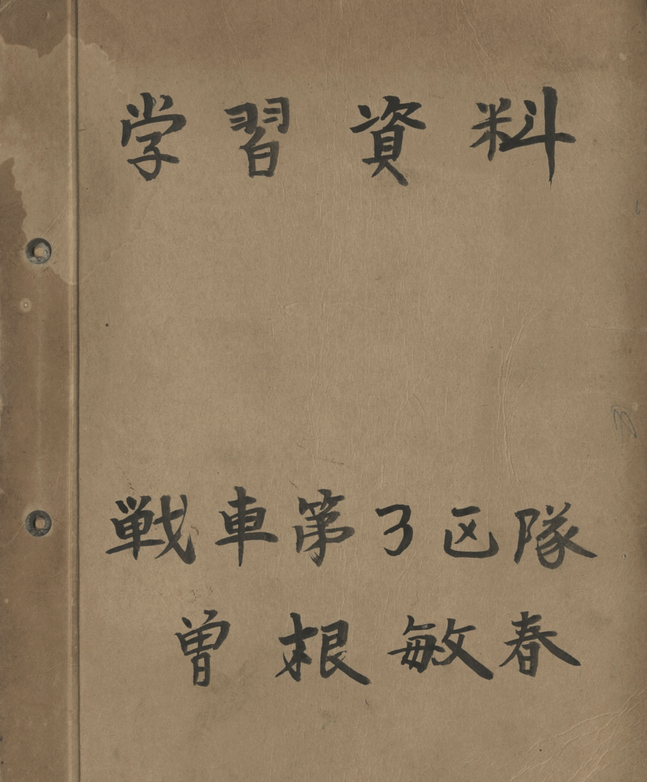 学習資料
戦車第3区隊
曽根敏春